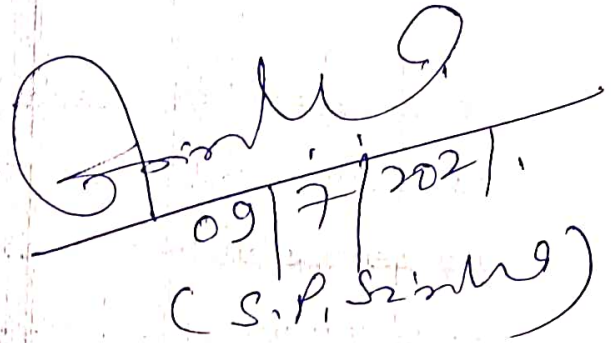 09/7/2021.
(S.P. Sinha)